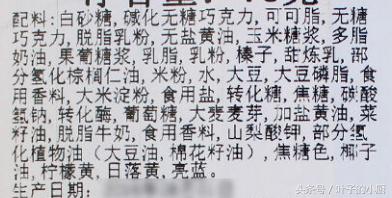 配料:白砂糖,碱化无糖巧克力,可可脂,无糖
巧克力,脱脂乳粉,无盐黄油,玉米糖浆,多脂
奶油,果葡糖浆,乳脂,乳粉,榛子,甜炼乳,部
分氢化棕榈仁油,米粉,水,大豆,大豆磷脂,食
用香料,大米淀粉,食用盐,转化糖,焦糖,碳酸
氢钠,转化酶,葡萄糖,大麦麦芽,加盐黄油,菜
籽油,脱脂牛奶,食用香料,山梨酸钾,部分氢
化植物油(大豆油,棉花籽油),焦糖色,椰子
油,柠檬黄,日落黄,亮蓝。
生产日期:
头条号/叶子的小厨